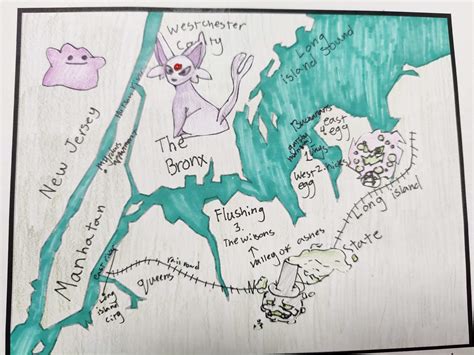 Westchester
County
Long
island sound
New Jersey
Manhatan
The
Bronx
Bucannans
east
egg
West
egg
2. Nicks
Long Island
Flushing
3.
The wilsons
Valley of ashes
State
rail road
queens
Long
island
city